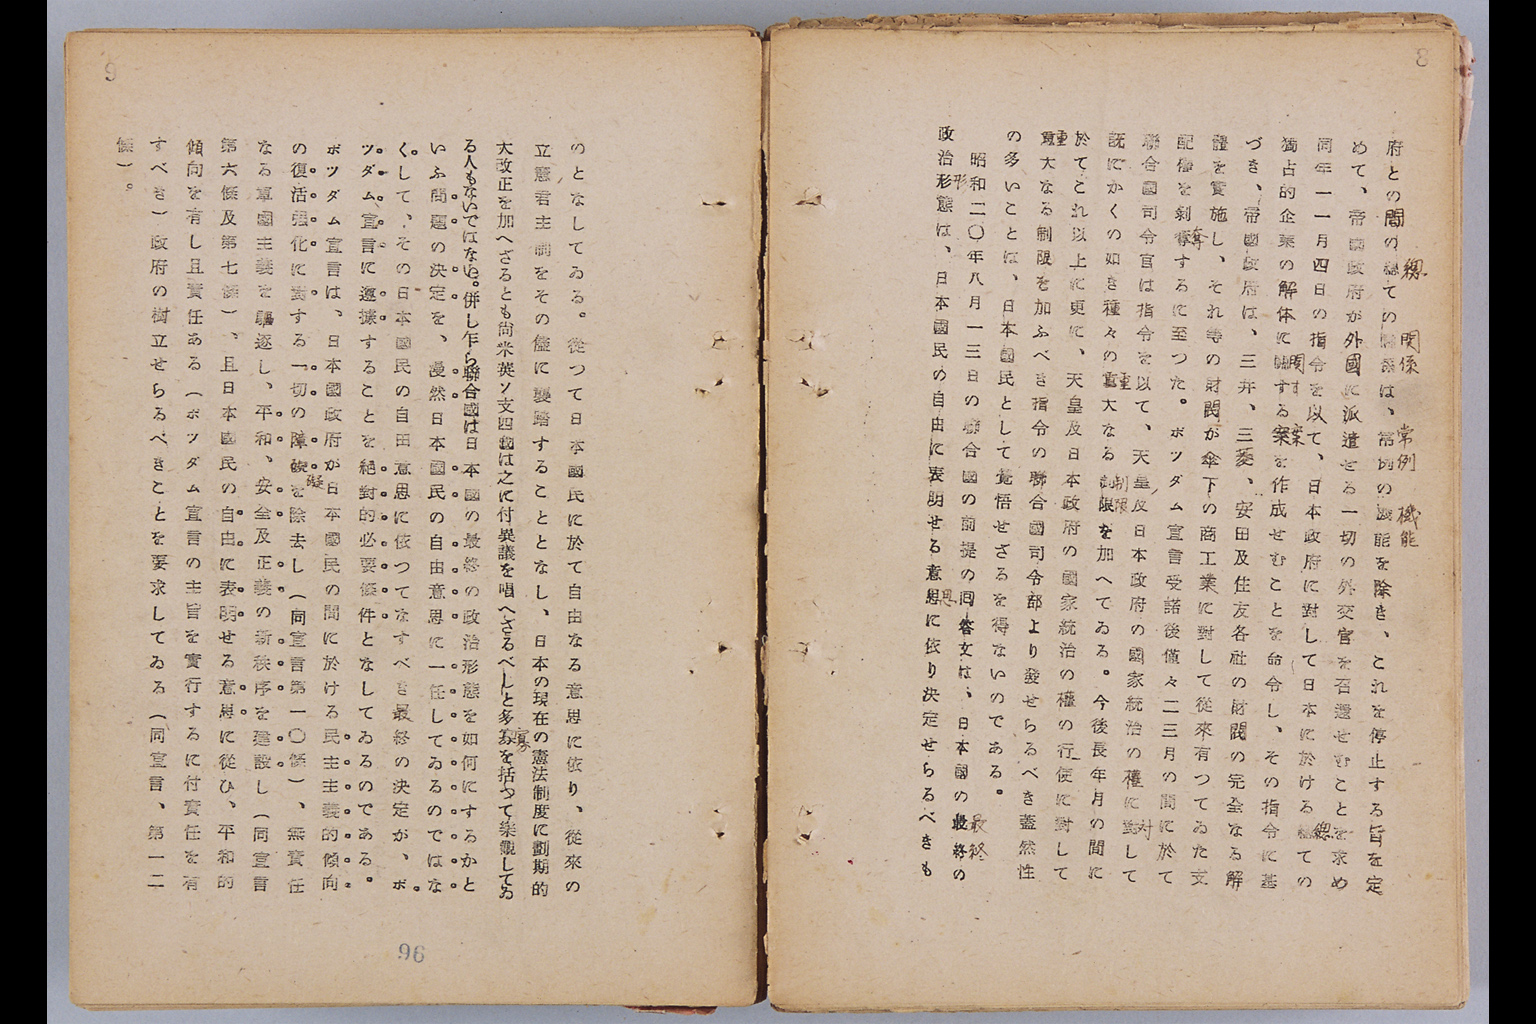 8
府との間の總ての關係は、常例の機能を除き、これを停止する旨を定
めて、帝國政府が外國に派遣せる一切の外交官を召還せむことを求め
同年一一月四日の指令を以て、日本政府に對して日本に於ける總ての
獨占的企業の解体に關する案を作成せむことを命令し、その指令に基
づき、帝國政府は、三井、三菱、安田及住友各社の財閥の完全なる解
體を實施し、それ等の財閥が傘下の商工業に對して從來有つてゐた支
配權を剝奪するに至つた。ポツダム宣言受諾後僅々二三月の間に於て
聯合國司令官は指令を以て、天皇及日本政府の國家統治の權に對して
既にかくの如き種々の重大なる制限を加へてゐる。今後長年月の間に
於てこれ以上に更に、天皇及日本政府の國家統治の權の行使に對して
重大なる制限を加ふべき指令の聯合國司令部より發せらるべき蓋然性
の多いことは、日本國民として覺悟せざるを得ないのである。
昭和二〇年八月一三日の聯合國の前提の回答文は、日本國の最終の
政治形態は、日本國民の自由に表明せる意思に依り決定せらるべきも
總
關係
常例
機能
關
案
總
奪
制限
對
重
重
最終
形
思
9
のとなしてゐる。從つて日本國民に於て自由なる意思に依り、從來の
立憲君主制をその儘に襲踏することとなし、日本の現在の憲法制度に劃期的
大改正を加へざるとも尚米英ソ支四國は之に付異議を唱へざるべしと多寡を括つて樂觀してゐ
る人もないではない。併し乍ら聯合國は日本國の最終の政治形態を如何にするかと
いふ問題の決定を、漫然日本國民の自由意思に一任してゐるのではな
くして、その日本國民の自由意思に依つてなすべき最終の決定が、ポ
ツダム宣言に遵據することを絕對的必要條件となしてゐるのである。
ポツダム宣言は、日本國政府が日本國民の間に於ける民主主義的傾向
の復活强化に對する一切の障礙を除去し（同宣言第一〇條）、無責任
なる軍國主義を驅逐し、平和、安全及正義の新秩序を建設し（同宣言
第六條及第七條）、且日本國民の自由に表明せる意思に從ひ、平和的
傾向を有し且責任ある（ポツダム宣言の主旨を實行するに付責任を有
すべき）政府の樹立せらるべきことを要求してゐる（同宣言、第一二
條）。
寡
礙
96